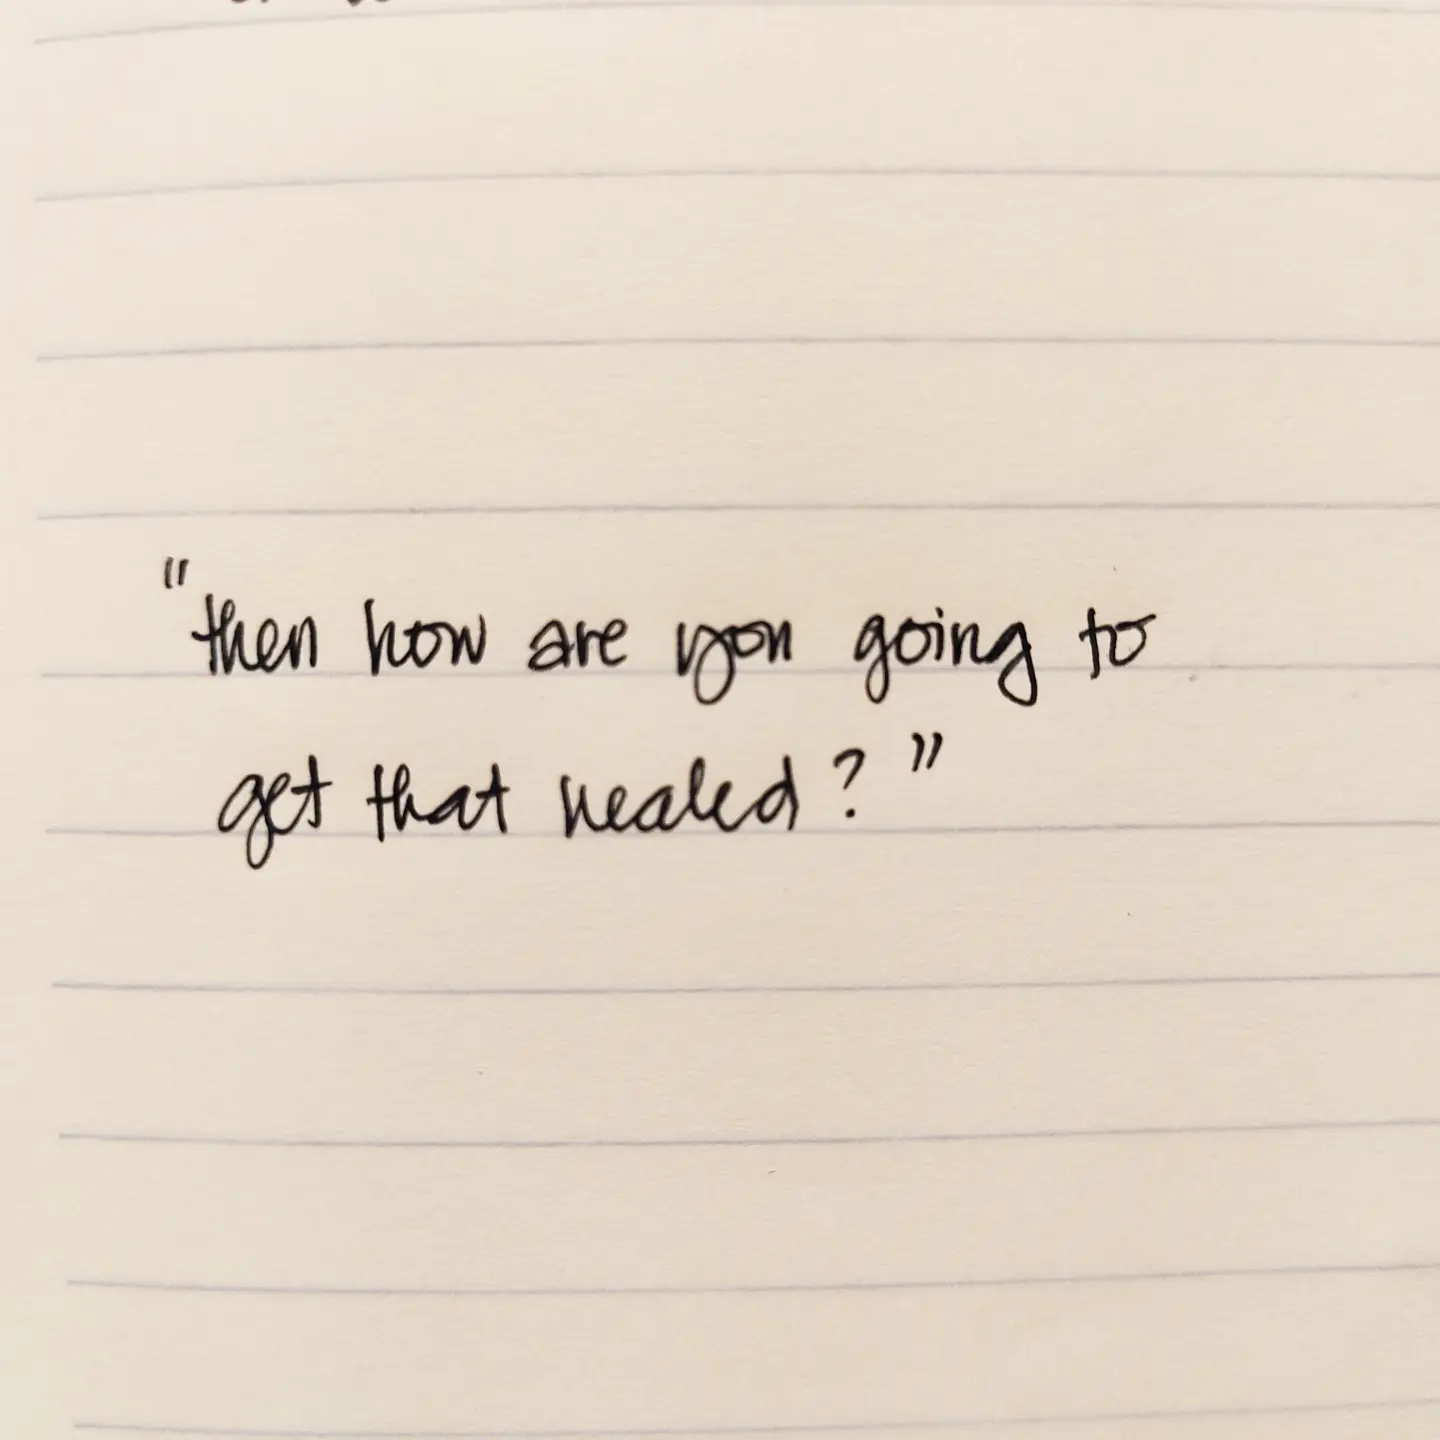 "then how are you going to
get that healed?"